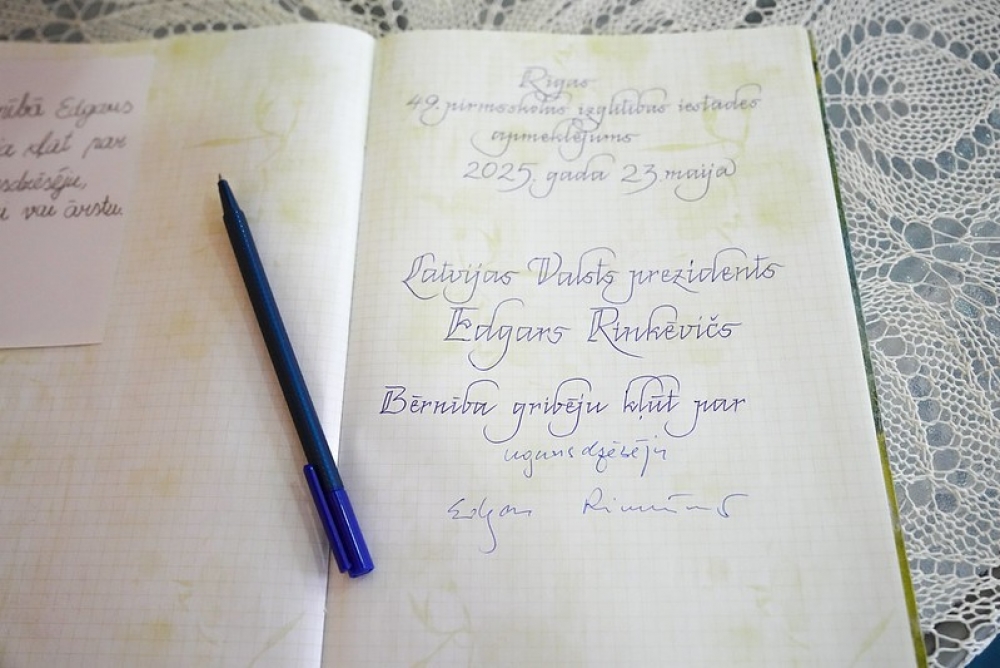 Edgars
kļūt par
vai ārstu.
Rīgas
49. pirmsskolas izglītības iestādes
apmeklējums
2025. gada 23. maijā
Latvijas Valsts prezidents
Edgars Rinkēvičs
Bērnībā gribēju kļūt par
ugunsdzēsēju
Edgars Rinkēvičs